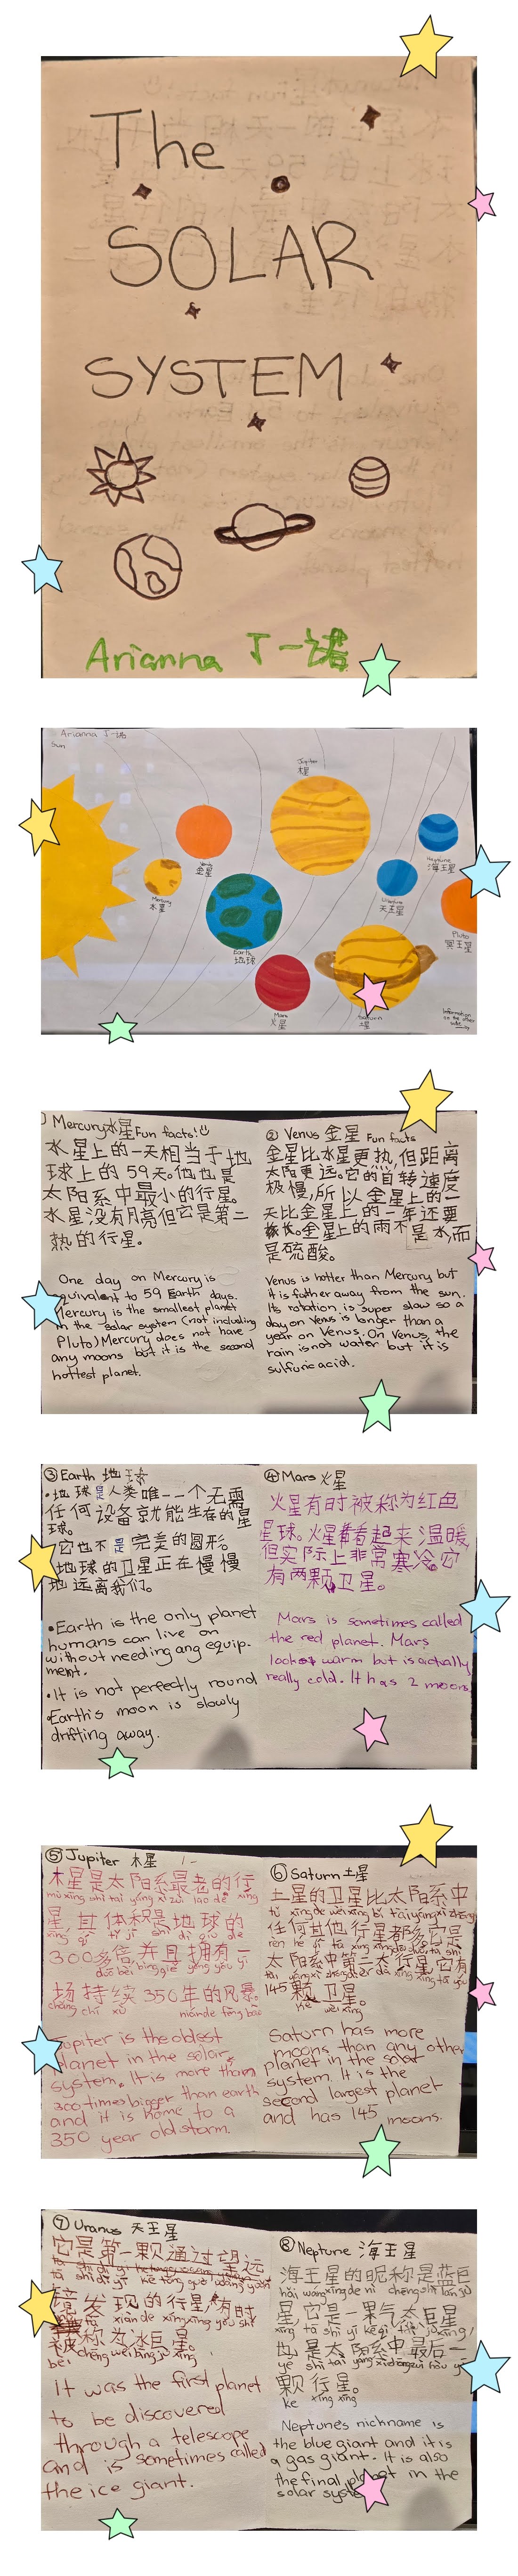 The
SOLAR
SYSTEM
Arianna 丁一诺
Arianna 丁一诺
Sun
Jupiter
木星
Venus
金星
Mercury
水星
Earth
地球
Mars
火星
Saturn
土星
Uranus
天王星
Neptune
海王星
Pluto
冥王星
Information
on the other
side
Mercury水星 Fun facts!
水星上的一天相当于地
球上的 59天。他也是
太阳系中最小的行星。
水星没有月亮但它是第二
热的行星。
One day on Mercury is
equivalent to 59 Earth days.
Mercury is the smallest planet
in the solar system (not including
Pluto) Mercury does not have
any moons but it is the second
hottest planet.
② Venus 金星 Fun facts
金星比水星更热,但距离
太阳更远。它的自转速度
极慢,所以金星上的一
天比金星上的一年还要
长。金星上的雨不是水,而
是硫酸。
Venus is hotter than Mercury but
it is futher away from the sun.
Its rotation is super slow so a
day on Venus is longer than a
year on Venus. On Venus, the
rain is not water but it is
sulfuric acid.
③ Earth 地球
•地球是人类唯一一个无需
任何设备就能生存的星
球。
•它也不是完美的圆形。
地球的卫星正在慢慢
地远离我们。
•Earth is the only planet
humans can live on
without needing any equip-
ment.
•It is not perfectly round
•Earth's moon is slowly
drifting away.
④ Mars 火星
火星有时被称为红色
星球。火星看起来温暖
但实际上非常寒冷。它
有两颗卫星。
Mars is sometimes called
the red planet. Mars
looks warm but is actually
really cold. It has 2 moons
⑤ Jupiter 木星
木星是太阳系最老的行
mù xīng shì tài yáng xì zuì lǎo de xíng
星,其体积是地球的
xīng qí tǐ jī shì dì qiú de
300多倍,并且拥有一
duō bèi bìng qiě yōng yǒu yī
场持续350年的风暴。
chǎng chí xù nián de fēng bào
Jupiter is the oldest
planet in the solar
system. It is more than
300 times bigger than earth
and it is home to a
350 year old storm.
⑥ Saturn 土星
土星的卫星比太阳系中
tǔ xīng de wèi xīng bǐ tài yáng xì zhōng
任何其他行星都多它是
rèn hé qí tā xíng xīng dōu duō tā shì
太阳系中第二大行星,它有
tài yáng xì zhōng dì èr dà xíng xīng tā yǒu
145颗卫星。
kē wèi xīng
Saturn has more
moons than any other
planet in the solar
system. It is the
second largest planet
and has 145 moons.
⑦ Uranus 天王星
它是第一颗通过望远
tā shì dì yī kē tōng guò wàng yuǎn
镜发现的行星!有时
fā xiàn de xíng xīng yǒu shí
被称为冰巨星。
bèi chēng wéi bīng jù xīng
It was the first planet
to be discovered
through a telescope
and is sometimes called
the ice giant.
⑧ Neptune 海王星
海王星的昵称是蓝巨
hǎi wáng xīng de nì chēng shì lán jù
星,它是一颗气态巨星
xīng tā shì yī kē qì tài jù xīng
也是太阳系中最后一
yě shì tài yáng xì zhōng zuì hòu yī
颗行星。
kē xíng xīng
Neptune's nickname is
the blue giant and it is
a gas giant. It is also
the final planet in the
solar system